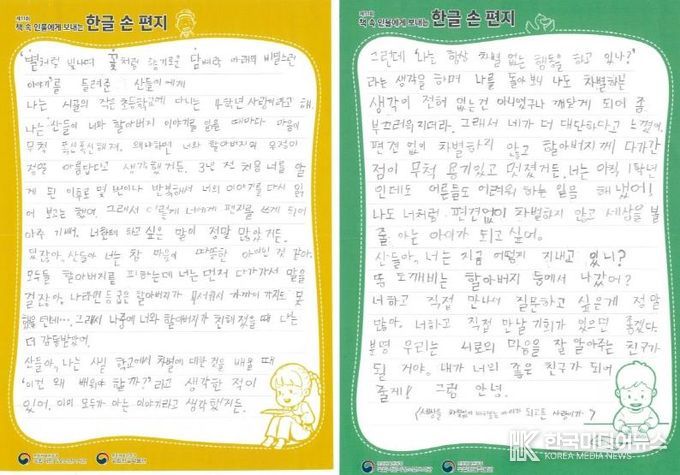 제11회
책 속 인물에게 보내는 한글 손 편지
'별처럼 빛나며 꽃처럼 향기로운 담벼락 아래의 비밀스런
이야기'를 들려준 산들이에게
나는 시골의 작은 초등학교에 다니는 4학년 사랑이라고 해.
나는 산들이 너와 할아버지 이야기를 읽을 때마다 마음이
무척 푹신푹신해져. 왜냐하면 너와 할아버지의 우정이
정말 아름답다고 생각했거든. 3년 전 처음 너를 알
게 된 이후로 몇 번이나 반복해서 너의 이야기를 다시 읽
어 보고는 했어. 그래서 이렇게 너에게 편지를 쓰게 되어
아주 기뻐. 너한테 하고 싶은 말이 정말 많았거든.
있잖아, 산들아 너는 참 마음이 따뜻한 아이인 것 같아.
모두들 할아버지를 피하는데 너는 먼저 다가가서 말을
걸잖아. 나라면 등굽은 할아버지가 무서워서 가까이 가지도 못
했을텐데... 그래서 나중에 너와 할아버지가 친해졌을 때 나는
더 감동받았어.
산들아, 나는 사실 학교에서 차별에 대한 것을 배울 때
'이건 왜 배워야 할까?'라고 생각한 적이
있어. 이미 모두가 아는 이야기라고 생각했거든.
제11회
책 속 인물에게 보내는 한글 손 편지
그런데 '나는 항상 차별 없는 행동을 하고 있나?'
라는 생각을 하며 나를 돌아보니 나도 차별하는
생각이 전혀 없는건 아니었구나 깨닫게 되어 좀
부끄러워지더라. 그래서 네가 더 대단하다고 느꼈어.
편견 없이 차별하지 않고 할아버지께 다가간
점이 무척 용기있고 멋졌거든. 너는 아직 1학년
인데도 어른들도 어려워 하는 일을 해냈어!
나도 너처럼 편견없이 차별하지 않고 세상을 볼
줄 아는 아이가 되고 싶어.
산들아, 너는 지금 어떻게 지내고 있니?
또 도깨비는 할아버지 등에서 나갔어?
너하고 직접 만나서 질문하고 싶은게 정말
많아. 너하고 직접 만날 기회가 있으면 좋겠다.
분명 우리는 서로의 마음을 잘 알아주는 친구가
될 거야. 내가 너의 좋은 친구가 되어
줄게! 그럼 안녕.
한국미디어뉴스
KOREA MEDIA NEWS